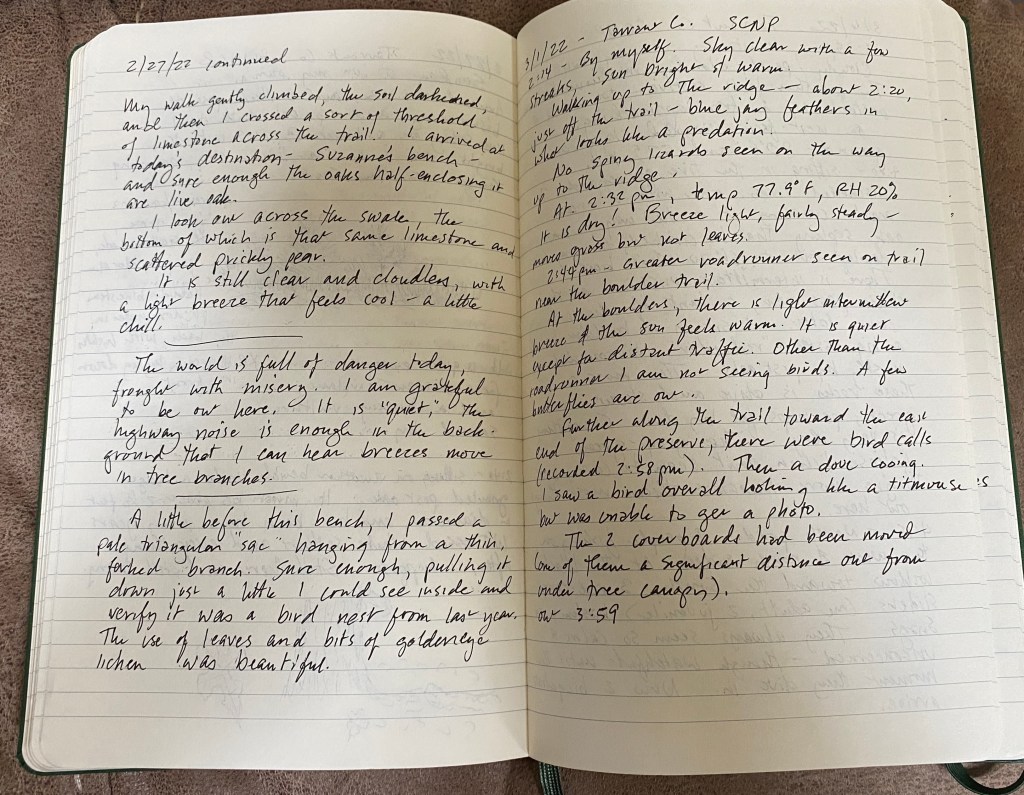 2/27/22 continued
My walk gently climbed, the soil darkened,
and then I crossed a sort of threshold
of limestone across the trail. I arrived at
today's destination - Suzanne's bench -
and sure enough the oaks half-enclosing it
are live oak.
I look out across the swale, the
bottom of which is that same limestone and
scattered prickly pear.
It is still clear and cloudless, with
a light breeze that feels cool - a little
chill.
The world is full of danger today,
fraught with misery. I am grateful
to be out here. It is "quiet," the
highway noise is enough in the back-
ground that I can hear breezes move
in tree branches.
A little before this bench, I passed a
pale triangular "sac" hanging from a thin,
forked branch. Sure enough, pulling it
down just a little I could see inside and
verify it was a bird nest from last year.
The use of leaves and bits of goldeneye
lichen was beautiful.
3/1/22 - Tarrant Co. SCNP
2:14 - By myself. Sky clear with a few
streaks, sun bright & warm.
Walking up to the ridge - about 2:20,
just off the trail - blue jay feathers in
what looks like a predation.
No spiny lizards seen on the way
up to the ridge.
At 2:32 pm, temp 77.9°F, RH 20%
it is dry! Breeze light, fairly steady -
moves grass but not leaves.
2:44 pm - Greater roadrunner seen on trail
near the boulder trail.
At the boulders, there is light intermittent
breeze & the sun feels warm. It is quiet
except for distant traffic. Other than the
roadrunner I am not seeing birds. A few
butterflies are out.
Further along the trail toward the east
end of the preserve, there were bird calls
(recorded 2:58 pm). Then a dove cooing.
I saw a bird overall looking like a titmouse
but was unable to get a photo.
The 2 coverboards had been moved
(one of them a significant distance out from
under tree canopy).
out 3:59